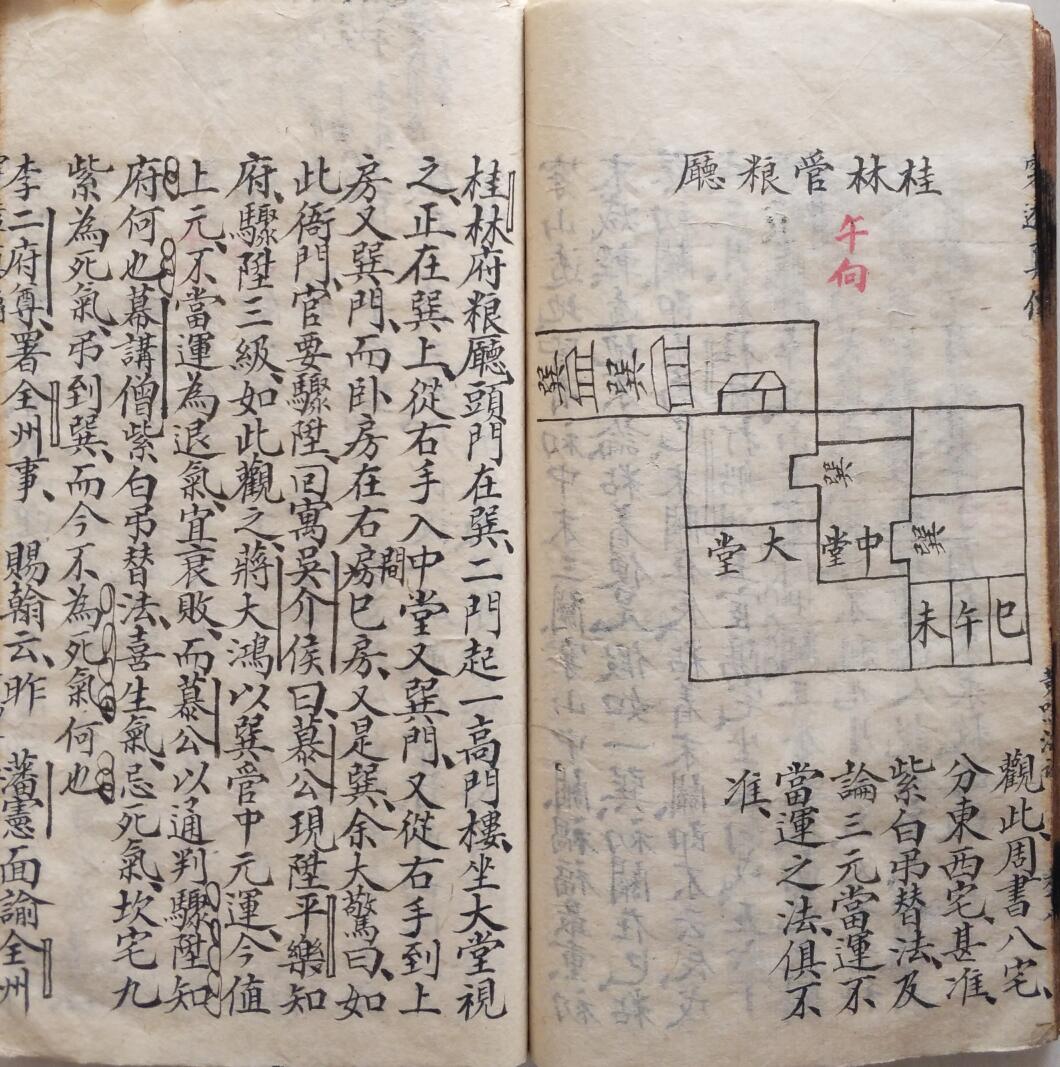 桂林管粮廳
午向
巽
巽
巽
巽
大堂
中堂
巳
午
未
觀此周書八宅、
分東西宅、甚准、
紫白吊替法、及
論三元當運不
當運之法、俱不
准、
桂林府粮廳頭門在巽、二門起一高門樓、坐大堂視
之、正在巽上、從右手入中堂又巽門、又從右手到上
房又巽門、而卧房在右房間巳房、又是巽、余大驚曰、如
此衙門、官要驟陞、回寓吳介侯曰、慕公現陞平樂知
府、驟陞三級、如此觀之、蔣大鴻以巽管中元運、今值
上元、不當運為退氣、宜衰敗、而慕公以通判驟陞知
府何也、幕講僧紫白吊替法、喜生氣、忌死氣、坎宅九
紫為死氣、吊到巽、而今不為死氣何也
李二府尊、署全州事、賜翰云、昨藩憲面諭全州